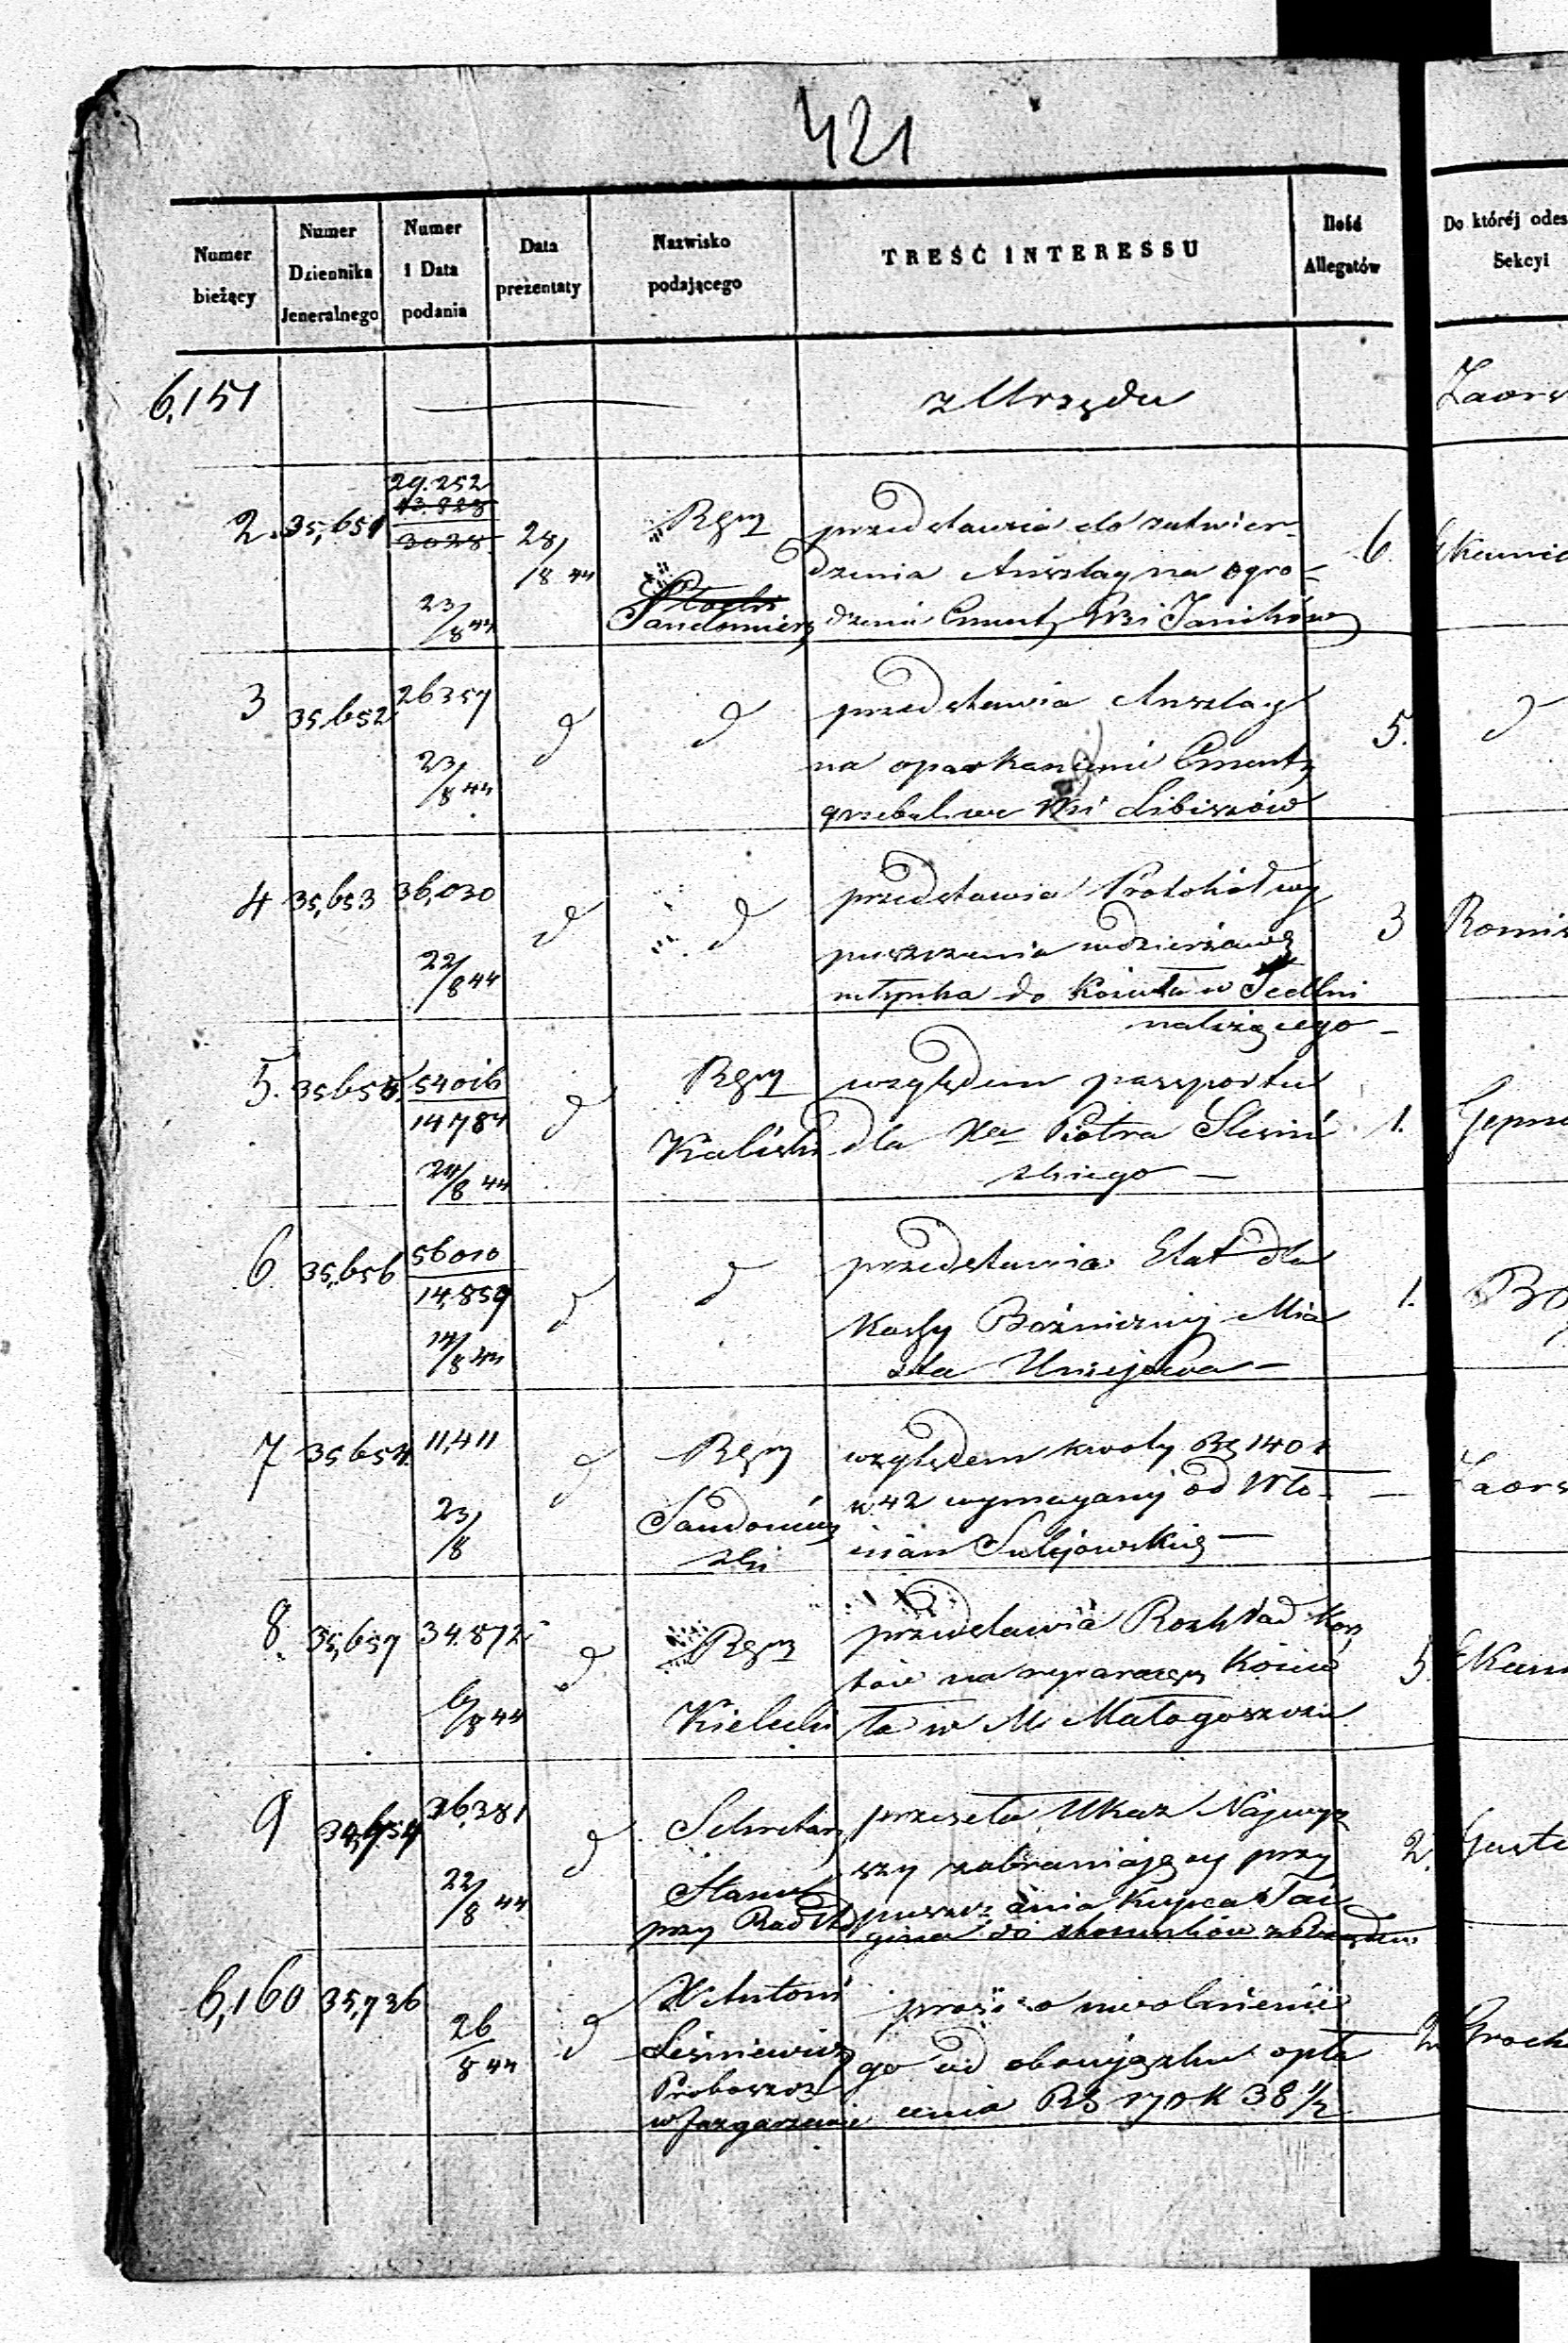 421
Numer bieżący | Numer Dziennika Jeneralnego | Numer i Data podania | Data prezentaty | Nazwisko podającego | TREŚĆ INTERESSU | Ilość Allegatów | Do któréj odes Sekcyi
6,151 | — | z Urzędu
2. | 35,651 | 29.252 | 13.828 | 3028 | 23/8 44 | 28/8 44 | Rzą | Sandomierz | 6.
przedstawia do zatwier-
dzenia Anszlag na ogro-
dzenie Cment. Wsi Janików
3 | 35,652 | 26357 | 23/8 44 | d | d | 5. | d
przedstawia Anszlag
na oparkanienie Cmentz
grzebal. we Wsi Libiszów
4 | 35,653 | 36,030 | 22/8 44 | d | d | 3
przedstawia Protokół wy
puszczenia w dzierżawę
młynka do Kościoła w Jedlni
należącego —
5. | 35655. | 54016 | 14784 | 24/8 44 | d | Rzą | Kaliski | 1.
względem passportu
dla Xa Piotra Slesiń
skiego —
6 | 35,656 | 56010 | 14,859 | 14/8 44 | d | d | 1.
przedstawia Etat dla
Kassy Bożniczny Mia
sta Uniejowa —
7 | 35654. | 11,411 | 23/8 | d | Rzą | Sandomirz | ski | —
względem kwoty Rs 140
k 42 wymagany od Wło-
ścian Sulejowskich —
8. | 35,657 | 34.872 | 6/8 44 | d | Rzą | Kielecki | 5
przedstawia Rozkład Kosz
tów na reparacyą Kościo
ła w M. Małogoszczu
9 | 36,381 | 22/8 44 | d | Sekretarz | Stanu | przy Rad | 2.
przeseła Ukaz Najwyż
szy zabraniający przy
puszczania Kupca
do stosunków z Rządem
6,160 | 35,736 | 26/8 44 | d | X Antoni | Leśniewicz | Proboszcz | w Jazgarzewie | 2
prosi o uwolnienie
go od obowiązku opła
cenia RS 170 K 38 1/2